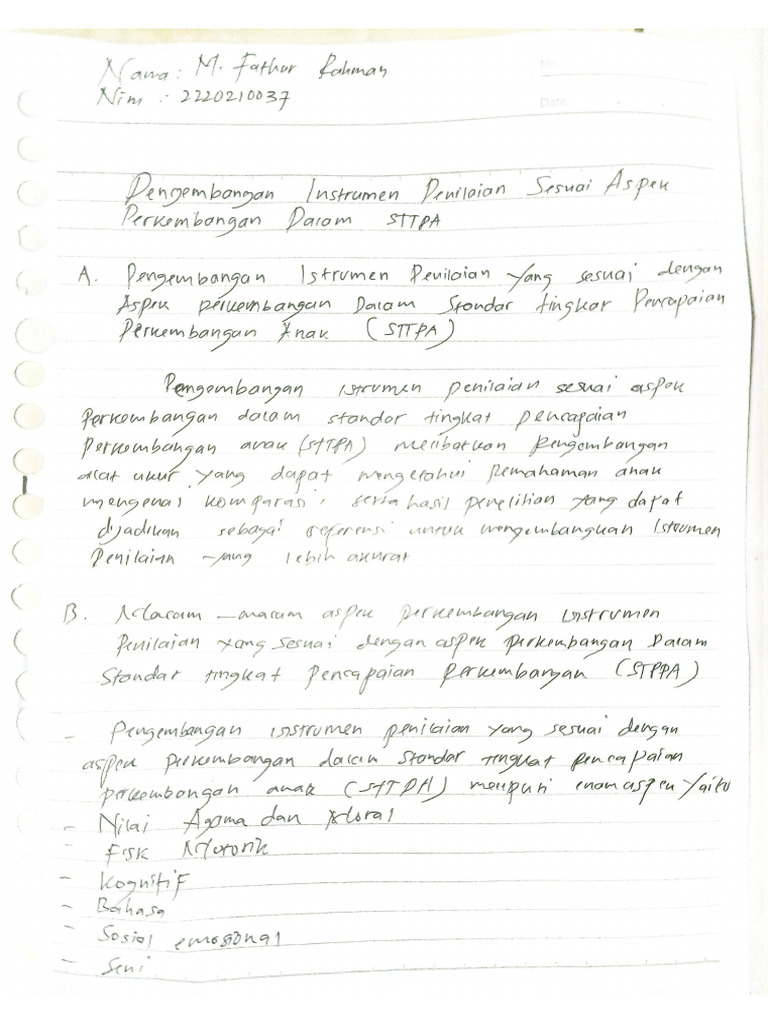 Nama : M. Fathur Rahman
No
Nim : 2220210037
Date
Pengembangan Instrumen Penilaian Sesuai Aspek
Perkembangan Dalam STTPA
A. Pengembangan Istrumen Penilaian yang sesuai dengan
Aspek perkembangan Dalam Standar tingkat Pencapaian
Perkembangan Anak (STTPA)
Pengembangan istrumen penilaian sesuai aspek
Perkembangan dalam standar tingkat pencapaian
Perkembangan anak (STTPA) melibatkan Pengembangan
alat ukur yang dapat mengetahui Pemahaman anak
mengenai komparasi, serta hasil penelitian yang dapat
dijadikan sebagai referensi untuk mengembangkan Istrumen
Penilaian yang lebih akurat
B. Macam - macam aspek perkembangan instrumen
Penilaian yang sesuai dengan aspek Perkembangan Dalam
Standar tingkat Pencapaian Perkembangan (STPPA)
- Pengembangan instrumen penilaian yang sesuai dengan
aspek Perkembangan dalam Standar tingkat Pencapaian
perkembangan anak (STTPA) meliputi enam aspek yaitu
- Nilai Agama dan Moral
- Fisk Motorik
- Kognitif
- Bahasa
- Sosial emosional
- Seni